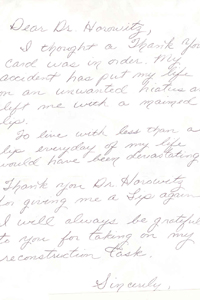 Dear Dr. Horowitz,
I thought a Thank You
card was in order. My
accident has put my life
on an unwanted hiatus and
left me with a maimed
lip.
To live with less than a
lip everyday of my life
would have been devastating
Thank you Dr. Horowitz
for giving me a Lip again
I will always be grateful
to you for taking on my
reconstruction task.
Sincerely,